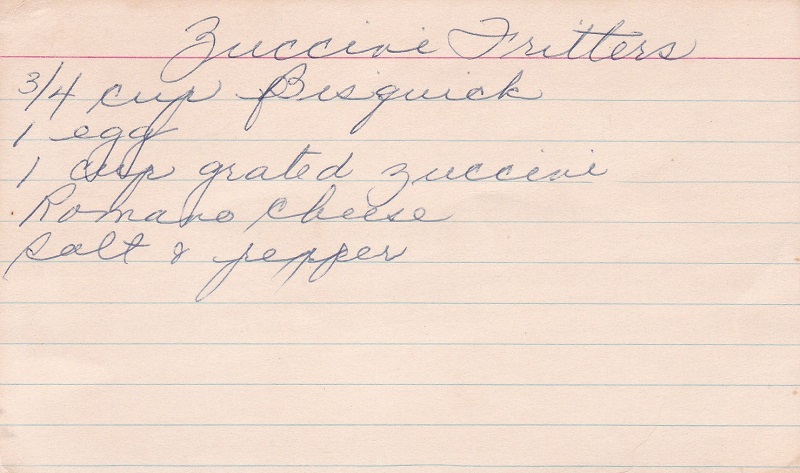 Zuccini Fritters
3/4 cup Bisquick
1 egg
1 cup grated zuccini
Romano cheese
salt & pepper